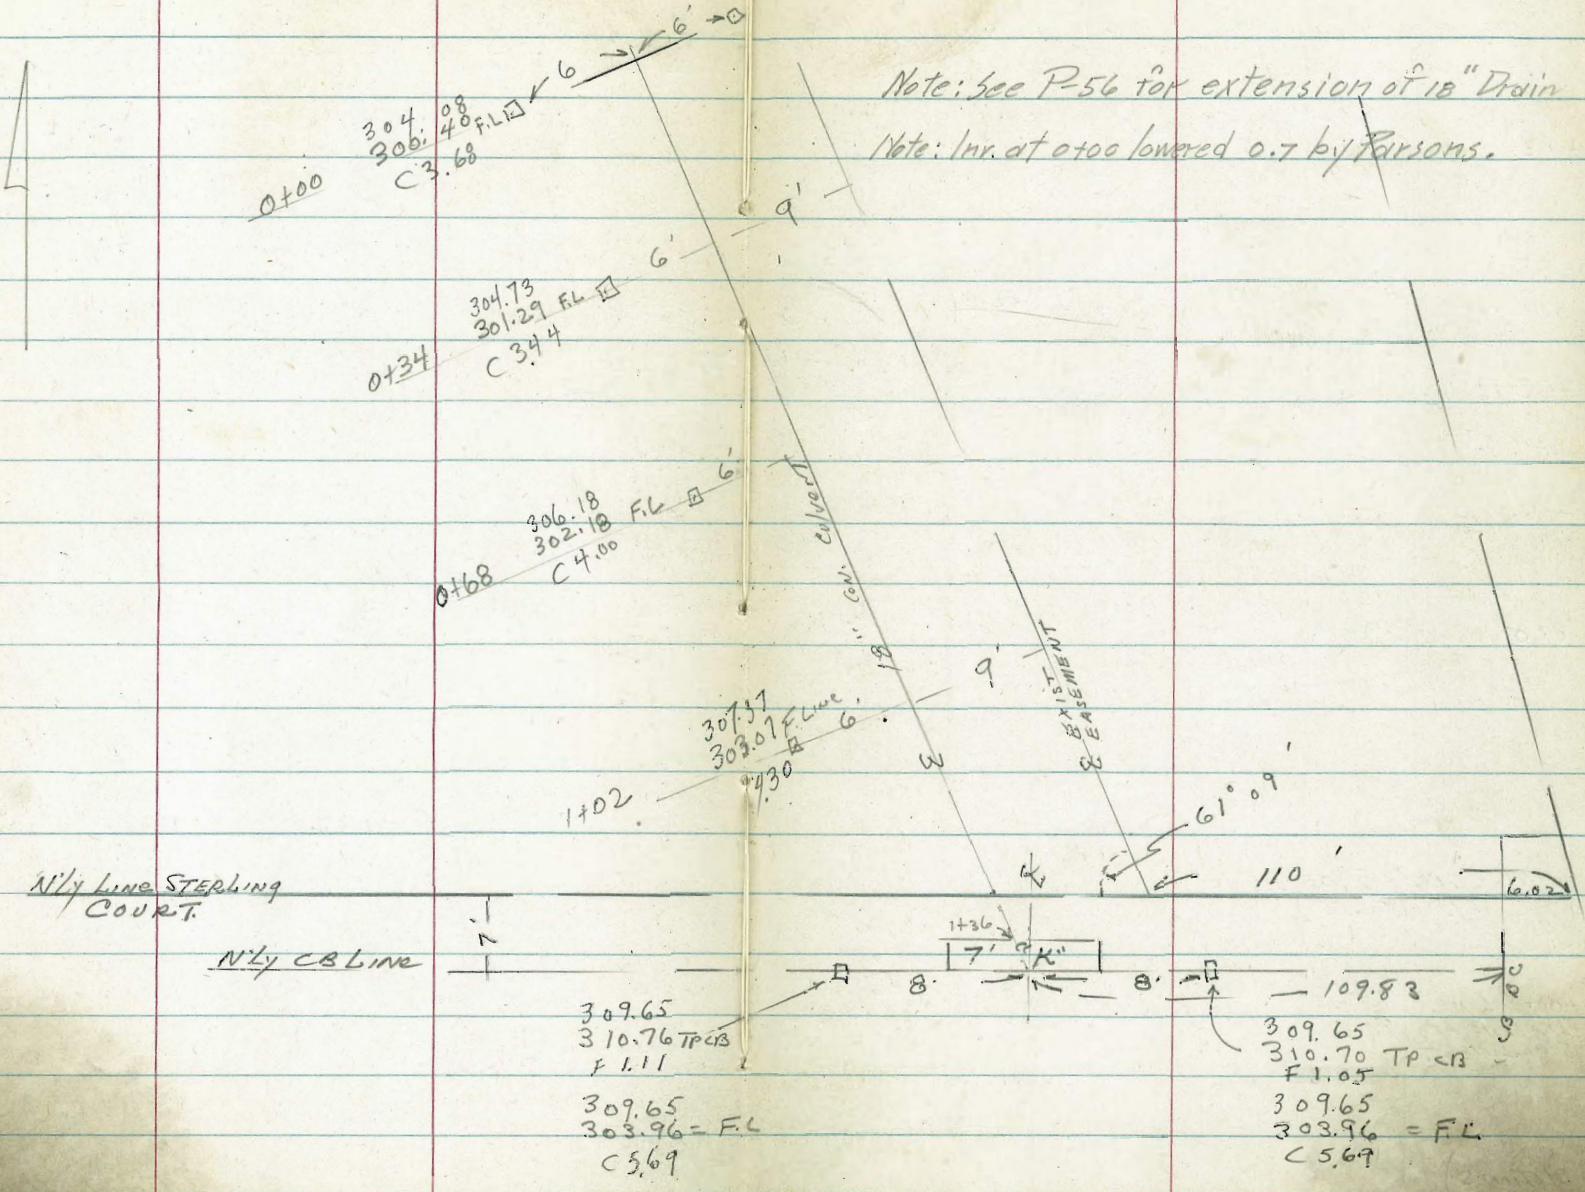 6'
6
Note: See P-56 for extension of 18" Drain
Note: Inv. at 0+00 lowered 0.7 by Parsons.
304.08
300.40 F.L
C 3.68
0+00
9'
6'
304.73
301.29 F.L
C 3.44
0+34
6'
306.18
302.18 F.L
C 4.00
0+68
18" CON. CULVERT
9'
EXIST
EASEMENT
307.37
303.07 F. Line
6'
4.30
1+02
61° 09'
110'
6.02
N'ly Line STERLING
COURT.
7'
1+36
7' "K"
N'Ly CB Line
8' 8'
109.83
309.65
310.76 TP CB
F 1.11
309.65
303.96 = F.L
C 5.69
309.65
310.70 TP CB
F 1.05
309.65
303.96 = F.L.
C 5.69